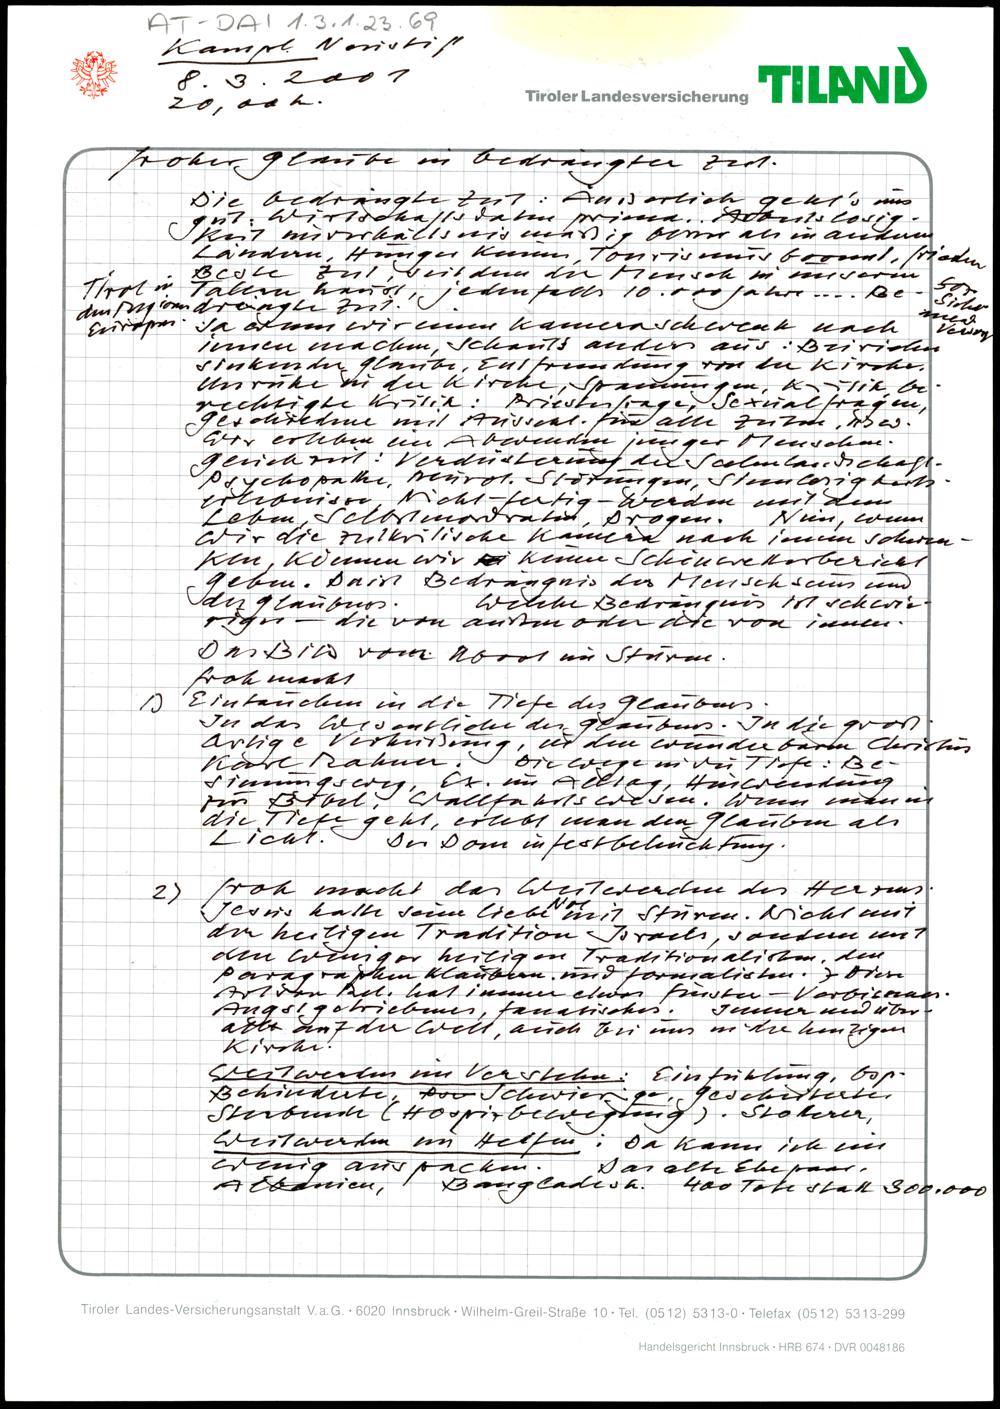 AT-DAI 1.3.1.23.69
8. 3. 2001
20,00 h.
Tiroler Landesversicherung TILAND
froher Glaube in bedrängter Zeit.
Die bedrängte Zeit: Äusserlich geht's uns
gut. Wirtschaftsdaten prima. Arbeitslosig-
keit unverhältnismäßig besser als in anderen
Ländern, Hunger keinen, Tourismus boomt, Frieden
Beste Zeit, seitdem der Mensch in unseren
Tirol in
den Regionen
Europas.
Tälern haust, jedenfalls 10.000 Jahre .... Be-
Soz.
Siche
drängte Zeit.
Ja wenn wir einen Kameraschwenk nach
innen machen, schaut's anders aus: Bei vielen
sinkender Glaube, Entfremdung von der Kirche.
Unruhe in der Kirche, Spannungen, Kritik, be-
rechtigte Kritik: Priesterfrage, Sexualfragen,
Geschiedene mit Aussch. für alle Zeiten,
Wir erleben ein Abwenden junger Menschen.
Gleichzeit: Verdüsterung der Seelenlandschaft.
Psychopathe, neurot. Störungen, Sinnlosigkeits-
erlebnisse, Nicht-fertig-Werden mit dem
Leben, Selbstmordraten, Drogen. Nun, wenn
wir die zeitkritische Kamera nach innen schwen-
ken, können wir keinen Schönwetterbericht
geben. Da ist Bedrängnis des Menschseins und
des Glaubens. Welche Bedrängnis ist schwie-
riger – die von außen oder die von innen.
Das Bild vom Boot im Sturm.
froh macht
1) Eintauchen in die Tiefe des Glaubens.
In das Wesentliche des Glaubens. In die groß-
artige Verheißung, in den wunderbaren Christus
Karl Rahner. Die Wege in die Tiefe: Be-
sinnungsweg, Ex. im Alltag, Hinwendung
zur Bibel, Wallfahrtswesen. Wenn man in
die Tiefe geht, erlebt man den Glauben als
Licht. Der Dom in Festbeleuchtung.
2) froh macht das Weitwerden des Herzens.
Jesus hatte seine liebe Not mit Sturen. Nicht mit
der heiligen Tradition Israels, sondern mit
den weniger heiligen Traditionalisten, den
Paragraphen Klaubern und Formalisten. Diese
Art von Rel. hat immer etwas Finster – Verbissenes.
Angstgetriebenes, fanatisches. Immer und über-
all auf der Welt, auch bei uns in der heutigen
Kirche.
Weitwerden im Verstehen: Einfühlung,
Behinderte, Schwierige, Gescheiterte,
Sterbende (Hospizbewegung).
Weitwerden im Helfen: Da kann ich ein
wenig auspacken. Das alte Ehepaar.
Albanien, Bangladesh. 400 Tote statt 300.000
Tiroler Landes-Versicherungsanstalt V.a.G. · 6020 Innsbruck · Wilhelm-Greil-Straße 10 · Tel. (0512) 5313-0 · Telefax (0512) 5313-299
Handelsgericht Innsbruck · HRB 674 · DVR 0048186